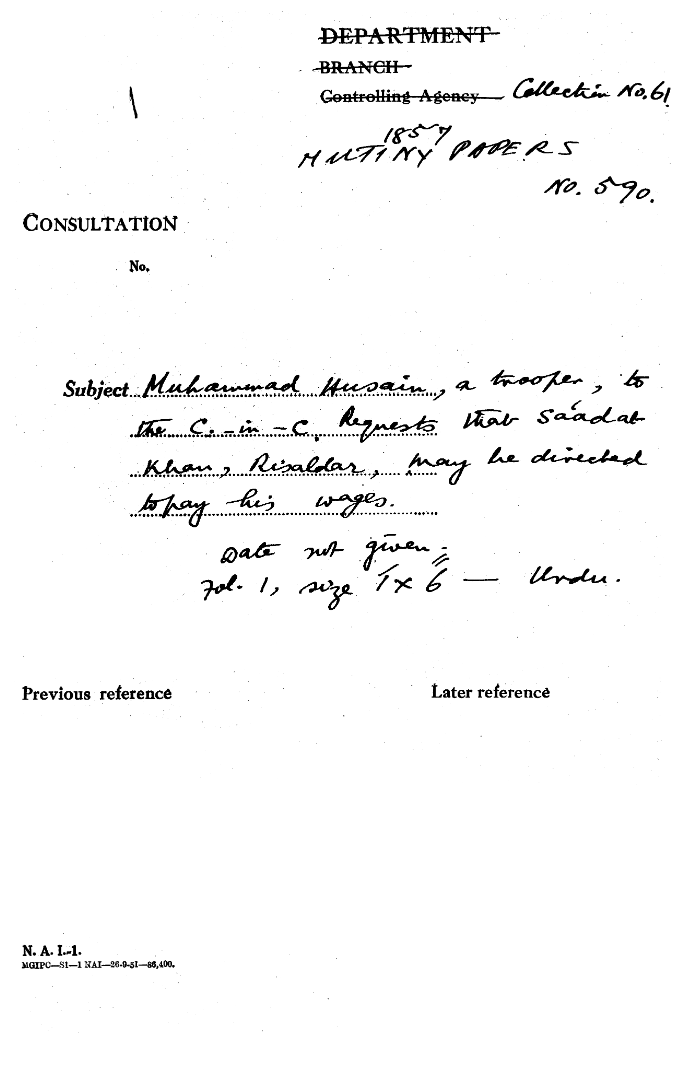 DEPARTMENT
BRANCH
Controlling Agency Collection No. 61
1857
MUTINY PAPERS
No. 590.
CONSULTATION
No.
Subject Muhammad Husain, a trooper, to
the C.-in-C. Requests that Sáadat
Khan, Risaldar, may be directed
to pay his wages.
Date not given.
Fol. 1, size 7x6 — Urdu.
Previous reference
Later reference
N. A. I.-1.
MGIPC—S1—1 NAI—26-9-51—86,400.